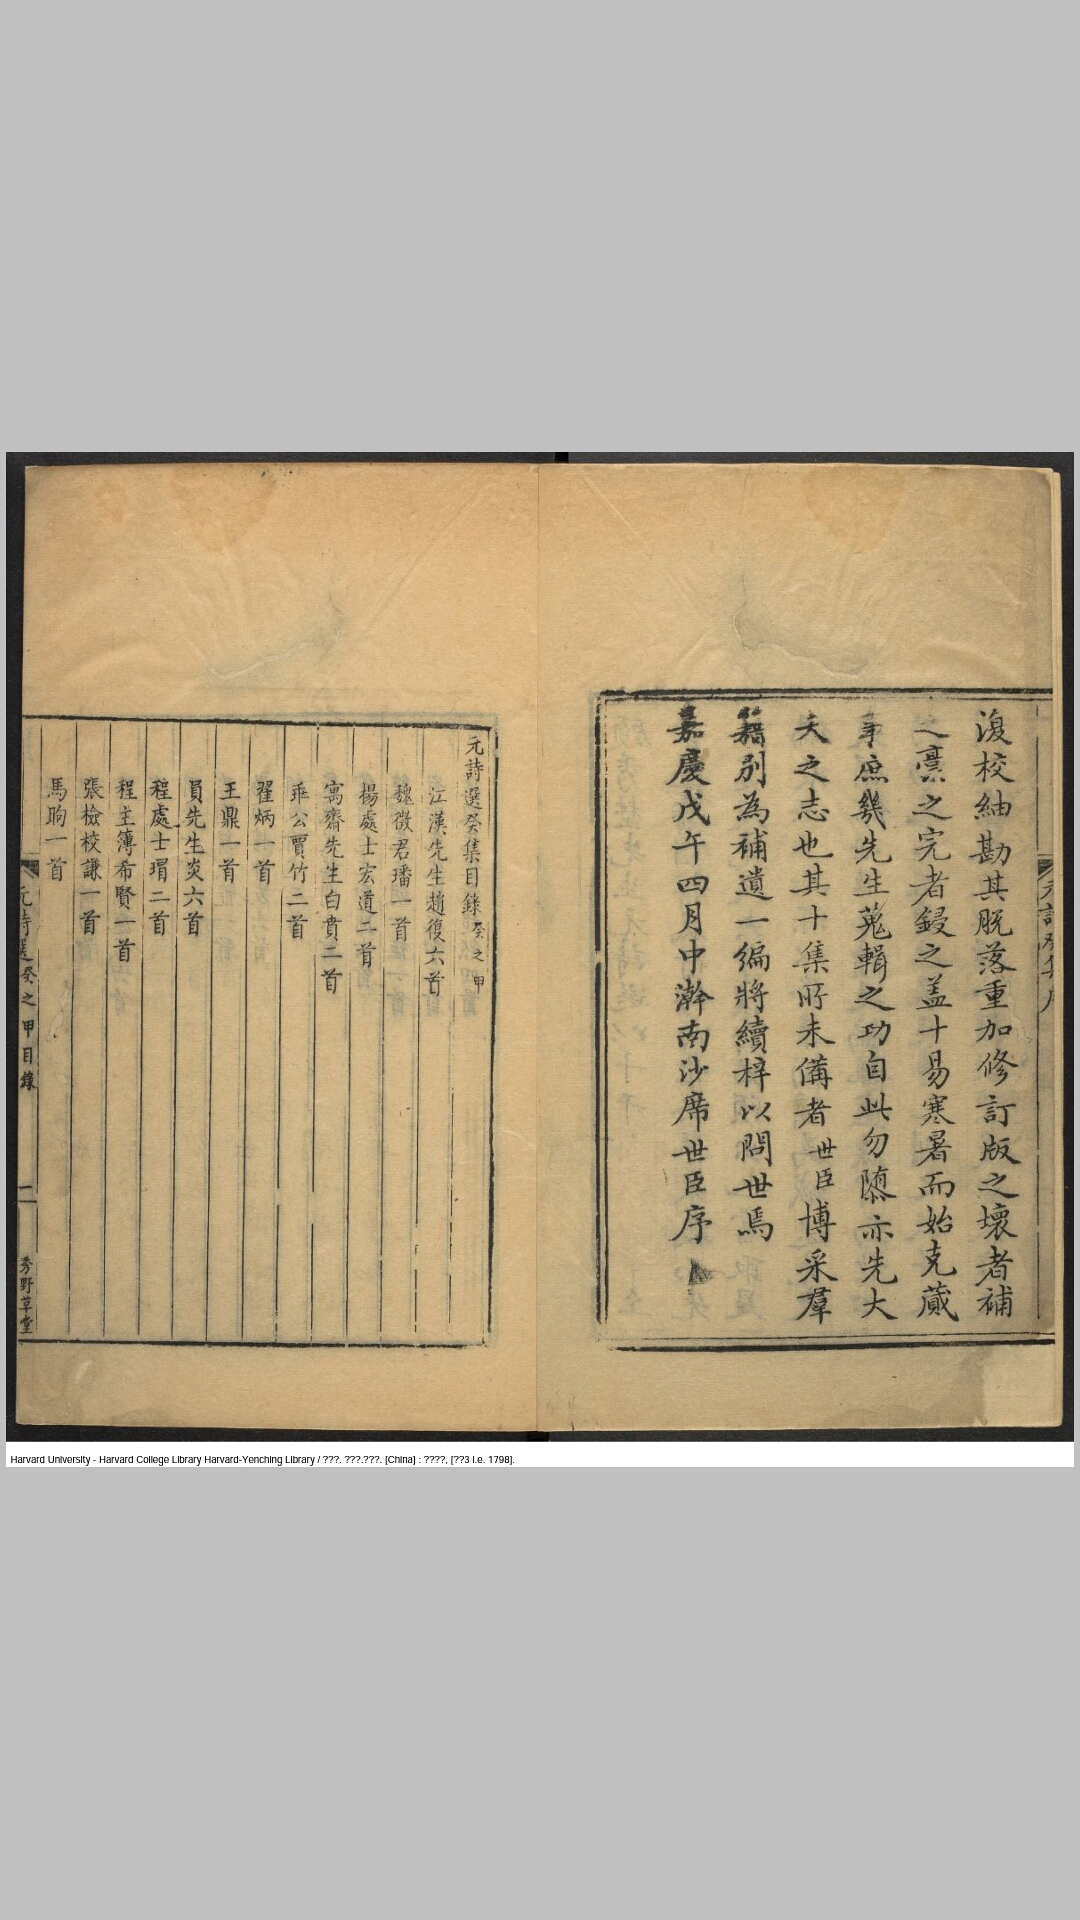 復校紬勘其脱落重加修訂版之壞者補
之稾之完者鋟之盖十易寒暑而始克蕆
事庶幾先生蒐輯之功自此勿隳亦先大
夫之志也其十集所未備者世臣博采羣
籍別為補遺一編將續梓以問世焉
嘉慶戊午四月中澣南沙席世臣序
元詩選癸集目錄 癸之甲
江漢先生趙復六首
魏徵君璠一首
楊處士宏道二首
寓齋先生白賁二首
乖公賈竹二首
翟炳一首
王鼎一首
員先生炎六首
程處士瑁二首
程主簿希賢一首
張檢校謙一首
馬昫一首
元詩選 癸之甲目錄 一 秀野草堂
Harvard University - Harvard College Library Harvard-Yenching Library / ???. ???.???. [China] : ????, [??3 i.e. 1798].